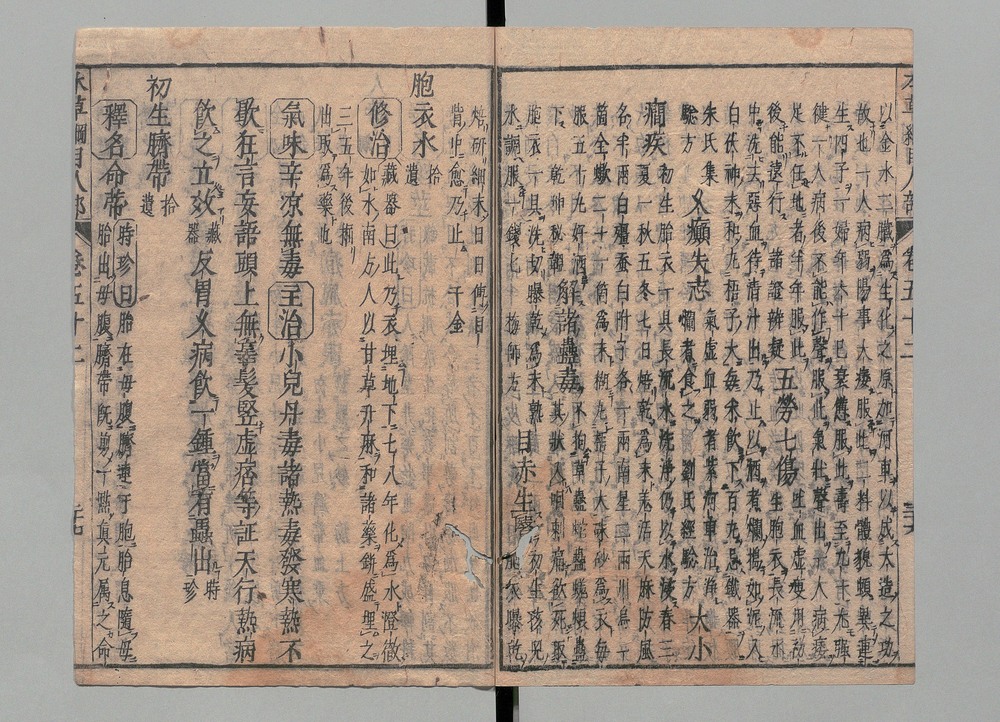 以金水二臟為生化之原加河車以成大造之功
故也一人病弱陽事大痿服此二料體貌頓異連
生四子一婦年六十已衰憊服此壽至九十尤強
健一人病後不能作聲服此氣壯聲出一人病痿
足不任地者半年服此後能遠行
五勞七傷
乃止以酒煮爛搗如泥入
白茯神末和丸梧子大每米飲下百丸忌鐵器
朱氏集驗方
久癲失志 氣虛血弱者紫河車治淨爛煮食之 劉氏經驗方
大小
癇疾 初生胎衣一具長流水洗淨仍以水浸春三
夏一秋五冬七日焙乾為末羌活天麻防風
各半兩白殭蠶白附子各一兩南星二兩川烏一
箇全蠍二十一箇為末糊丸梧子大硃砂為衣每
服五十丸好酒下 乾坤秘韞
解諸蠱毒 不拘草蠱蛇蠱蜣蜋蠱其狀入咽刺痛欲死取
胞衣一具洗切曝乾為末熟水調服一錢匕 梅師方
目赤生瞖 初生孩兒胞衣曝乾
焙研細末日日傅目眥中愈乃止 千金
胞衣水 拾遺
修治 藏器曰此乃衣埋地下七八年化為水澄徹
如水南方人以甘草升麻和諸藥缾盛埋之
三五年後掘出取為藥也
氣味辛凉無毒主治小兒丹毒諸熱毒發寒熱不
歇狂言妄語頭上無辜髮竪虛痞等証天行熱病
飲之立效 藏器 反胃久病飲一鍾當有蟲出 時珍
初生臍帶 拾遺
釋名命帶 時珍曰胎在母腹臍連于胞胎息隨母
胎出母腹臍帶既剪一㸃真元属之命
本草綱目人部
卷五十二